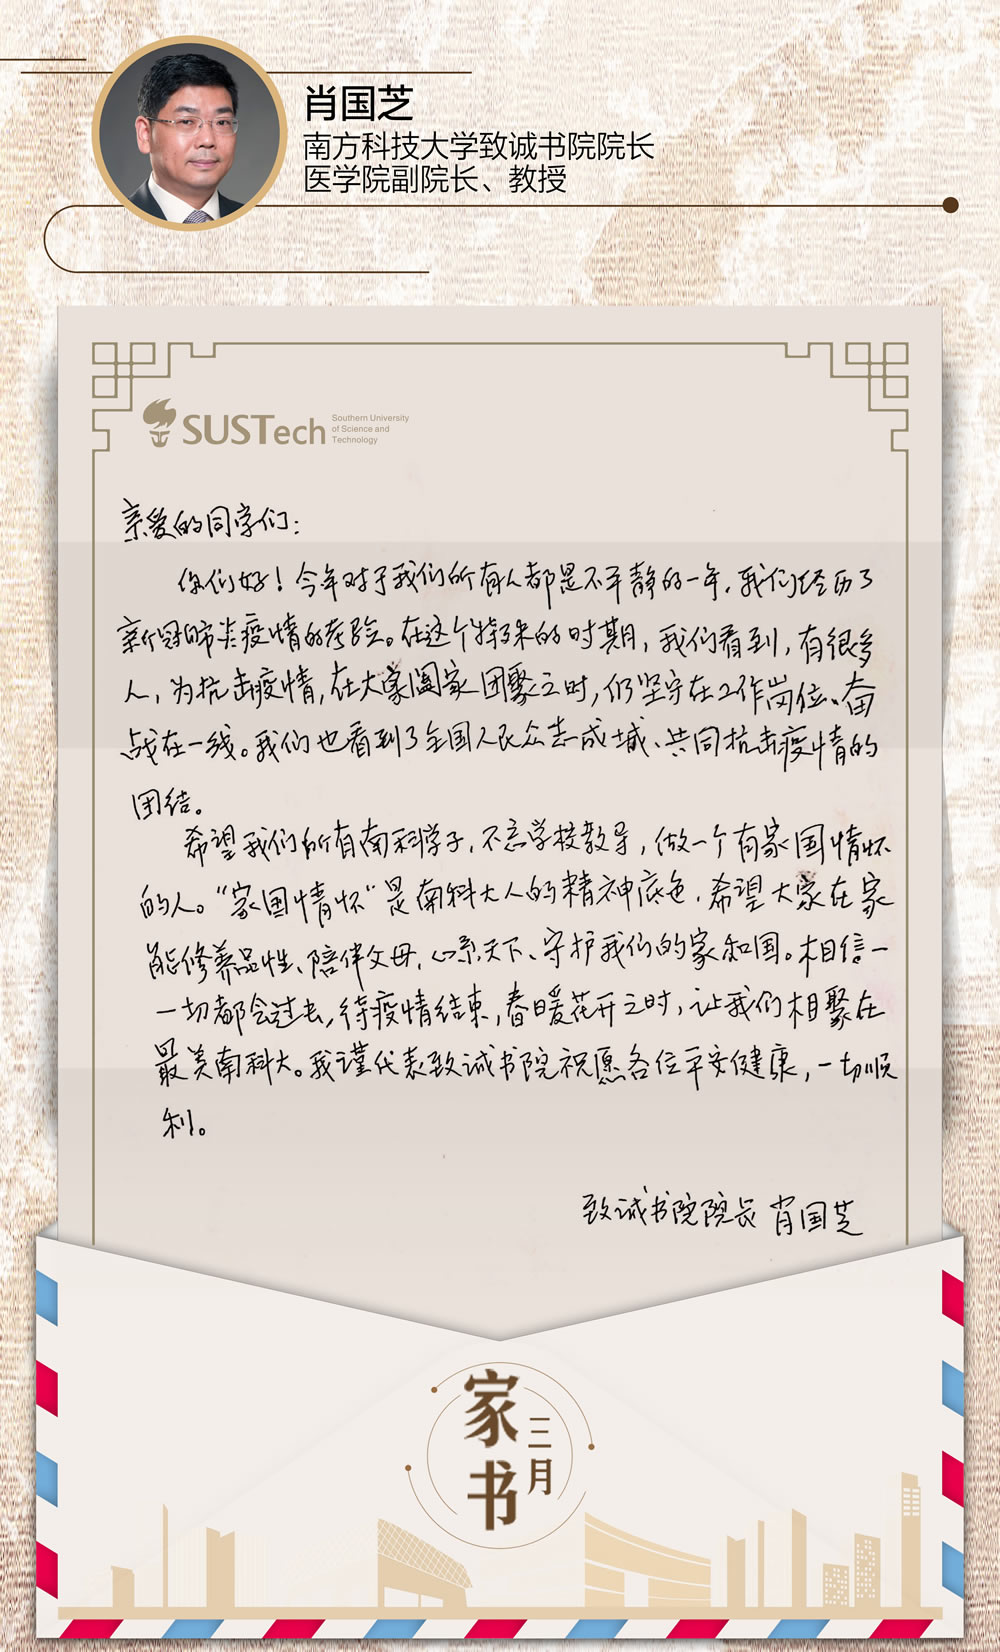 肖国芝
南方科技大学致诚书院院长
医学院副院长、教授
SUSTech
Southern University
of Science and
Technology
亲爱的同学们:
你们好!今年对于我们所有人都是不平静的一年,我们经历了
新冠肺炎疫情的考验。在这个特殊的时期,我们看到,有很多
人,为抗击疫情,在大家阖家团聚之时,仍坚守在工作岗位、奋
战在一线。我们也看到了全国人民众志成城、共同抗击疫情的
团结。
希望我们所有南科学子,不忘学校教导,做一个有家国情怀
的人。“家国情怀”是南科大人的精神底色,希望大家在家
能修养品性、陪伴父母,心系天下、守护我们的家和国。相信一
一切都会过去,待疫情结束,春暖花开之时,让我们相聚在
最美南科大。我谨代表致诚书院祝愿各位平安健康,一切顺
利。
致诚书院院长 肖国芝
家书
三月